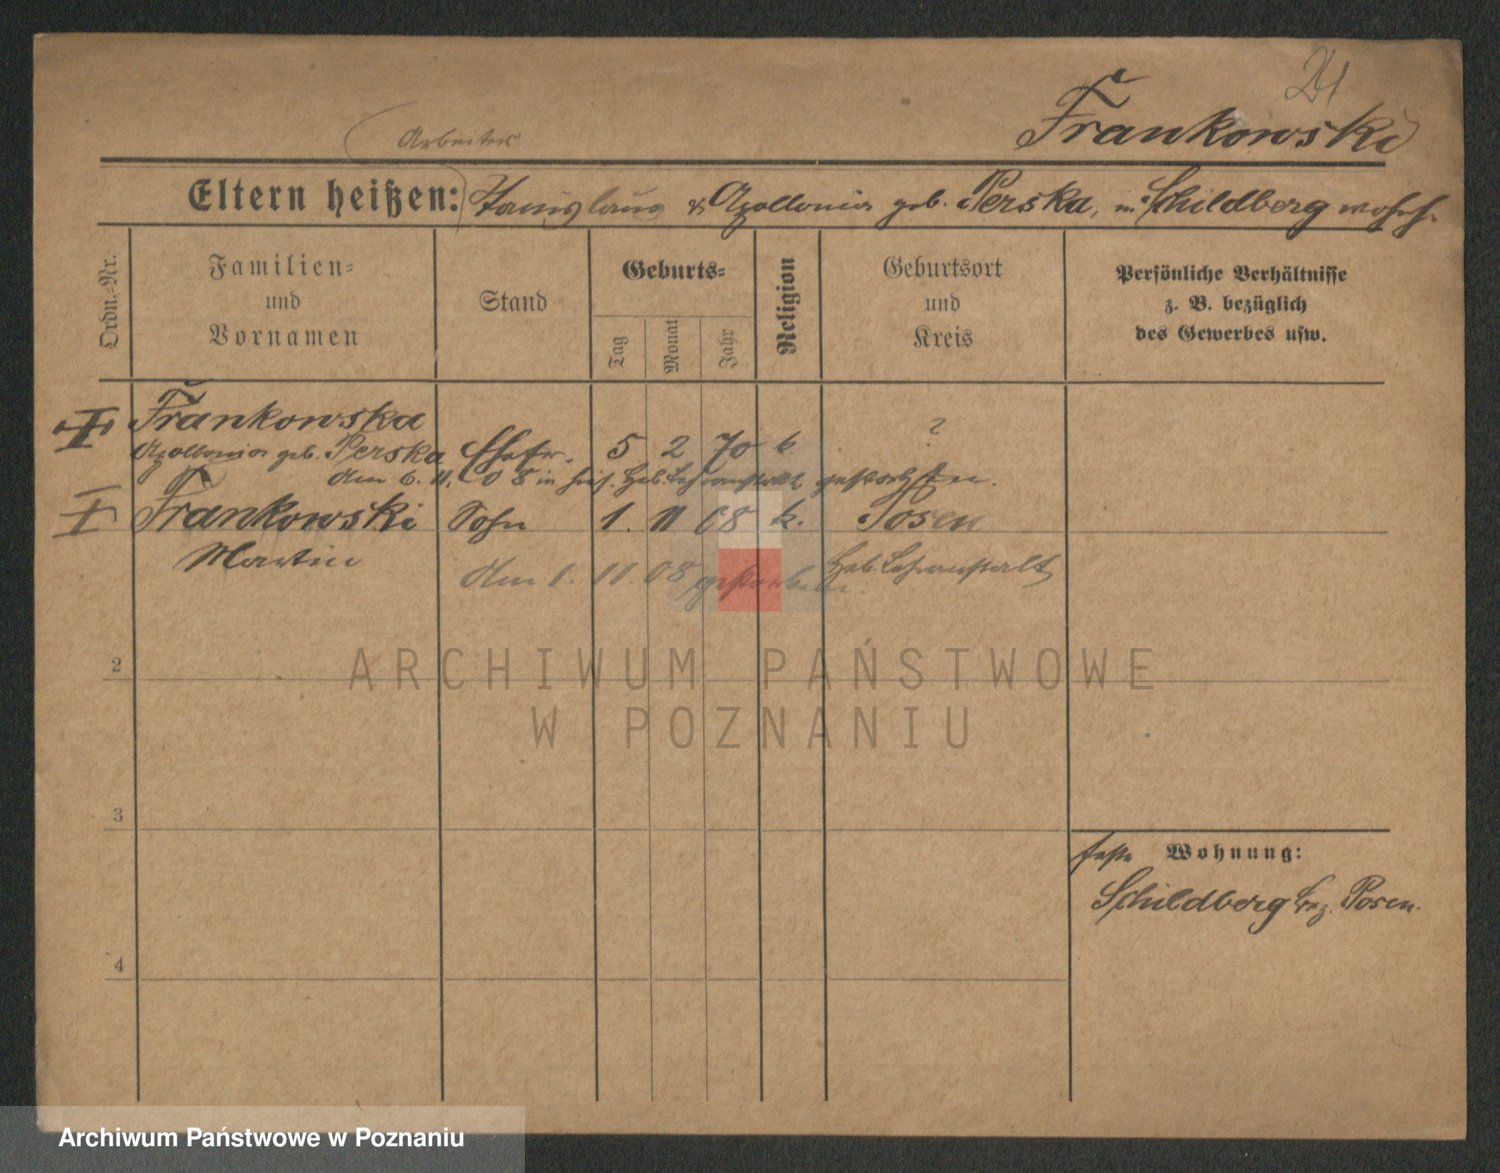 21
Frankowski
Arbeiters
Eltern heißen: Stanislaus & Apollonia geb. Perska, in Schildberg wohnh.
Ordn.-Nr.
Familien-
und
Vornamen
Stand
Geburts-
Tag
Monat
Jahr
Religion
Geburtsort
und
Kreis
Persönliche Verhältnisse
z. B. bezüglich
des Gewerbes usw.
Frankowska
Apollonia geb. Perska Ehefr. 5 2 70 k. ?
am 6. 11. 08 in hies. Heb. Lehranstalt gestorben.
Frankowski Sohn 1. 11 08 k. Posen
Martin
Heb. Lehranstalt
am 1. 11. 08 gestorben.
2
3
4
feste Wohnung:
Schildberg Bez. Posen.
ARCHIWUM PAŃSTWOWE
W POZNANIU
Archiwum Państwowe w Poznaniu